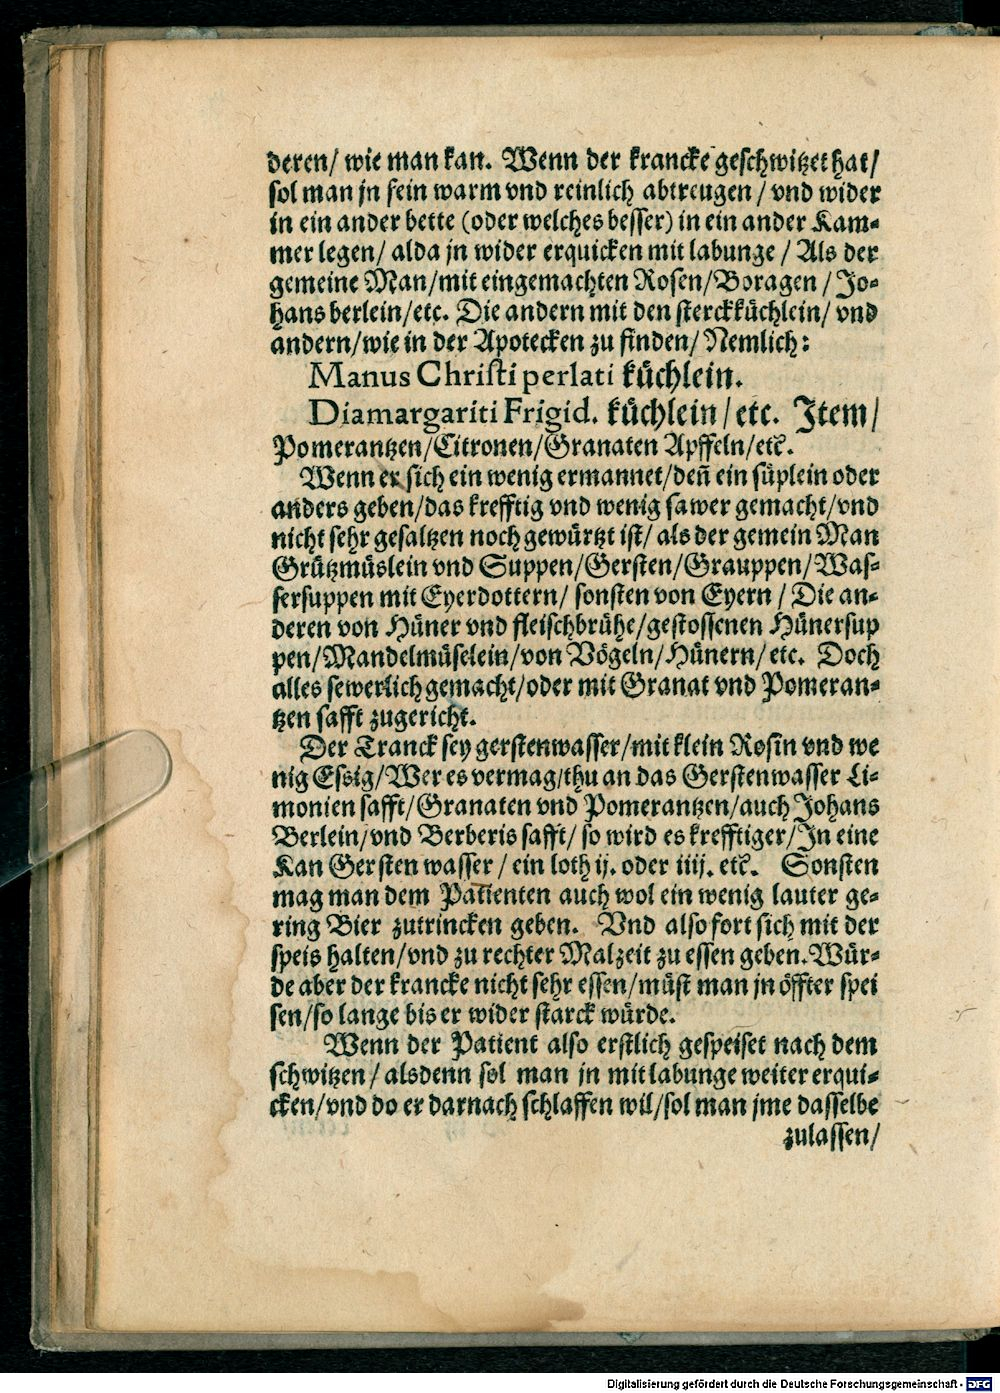 deren/ wie man kan. Wenn der krancke geschwitzet hat/
sol man jn fein warm vnd reinlich abtreugen / vnd wider
in ein ander bette (oder welches besser) in ein ander Kam-
mer legen/ alda jn wider erquicken mit labunge / Als der
gemeine Man/mit eingemachten Rosen/Boragen / Jo-
hans berlein/etc. Die andern mit den sterckküchlein/ vnd
andern/wie in der Apotecken zu finden/ Nemlich:
Manus Christi perlati küchlein.
Diamargariti Frigid. küchlein/ etc. Item/
Pomerantzen/Citronen/Granaten Apffeln/etc.
Wenn er sich ein wenig ermannet/deñ ein süplein oder
anders geben/das krefftig vnd wenig sawer gemacht/vnd
nicht sehr gesaltzen noch gewürtzt ist/ als der gemein Man
Grützmüslein vnd Suppen/Gersten/Grauppen/Was-
sersuppen mit Eyerdottern/ sonsten von Eyern / Die an-
deren von Hüner vnd fleischbrühe/gestossenen Hünersup
pen/Mandelmüselein/von Vögeln/Hünern/ etc. Doch
alles sewerlich gemacht/oder mit Granat vnd Pomeran-
tzen safft zugericht.
Der Tranck sey gerstenwasser/mit klein Rosin vnd we
nig Essig/Wer es vermag/thu an das Gerstenwasser Li-
monien safft/Granaten vnd Pomerantzen/auch Johans
Berlein/vnd Berberis safft/ so wird es krefftiger/In eine
Kan Gersten wasser / ein loth ij. oder iiij. etc. Sonsten
mag man dem Patienten auch wol ein wenig lauter ge-
ring Bier zutrincken geben. Vnd also fort sich mit der
speis halten/vnd zu rechter Malzeit zu essen geben. Wür-
de aber der krancke nicht sehr essen/müst man jn öffter spei
sen/so lange bis er wider starck würde.
Wenn der Patient also erstlich gespeiset nach dem
schwitzen / alsdenn sol man jn mit labunge weiter erqui-
cken/vnd do er darnach schlaffen wil/sol man jme dasselbe
zulassen/
Digitalisierung gefördert durch die Deutsche Forschungsgemeinschaft - DFG